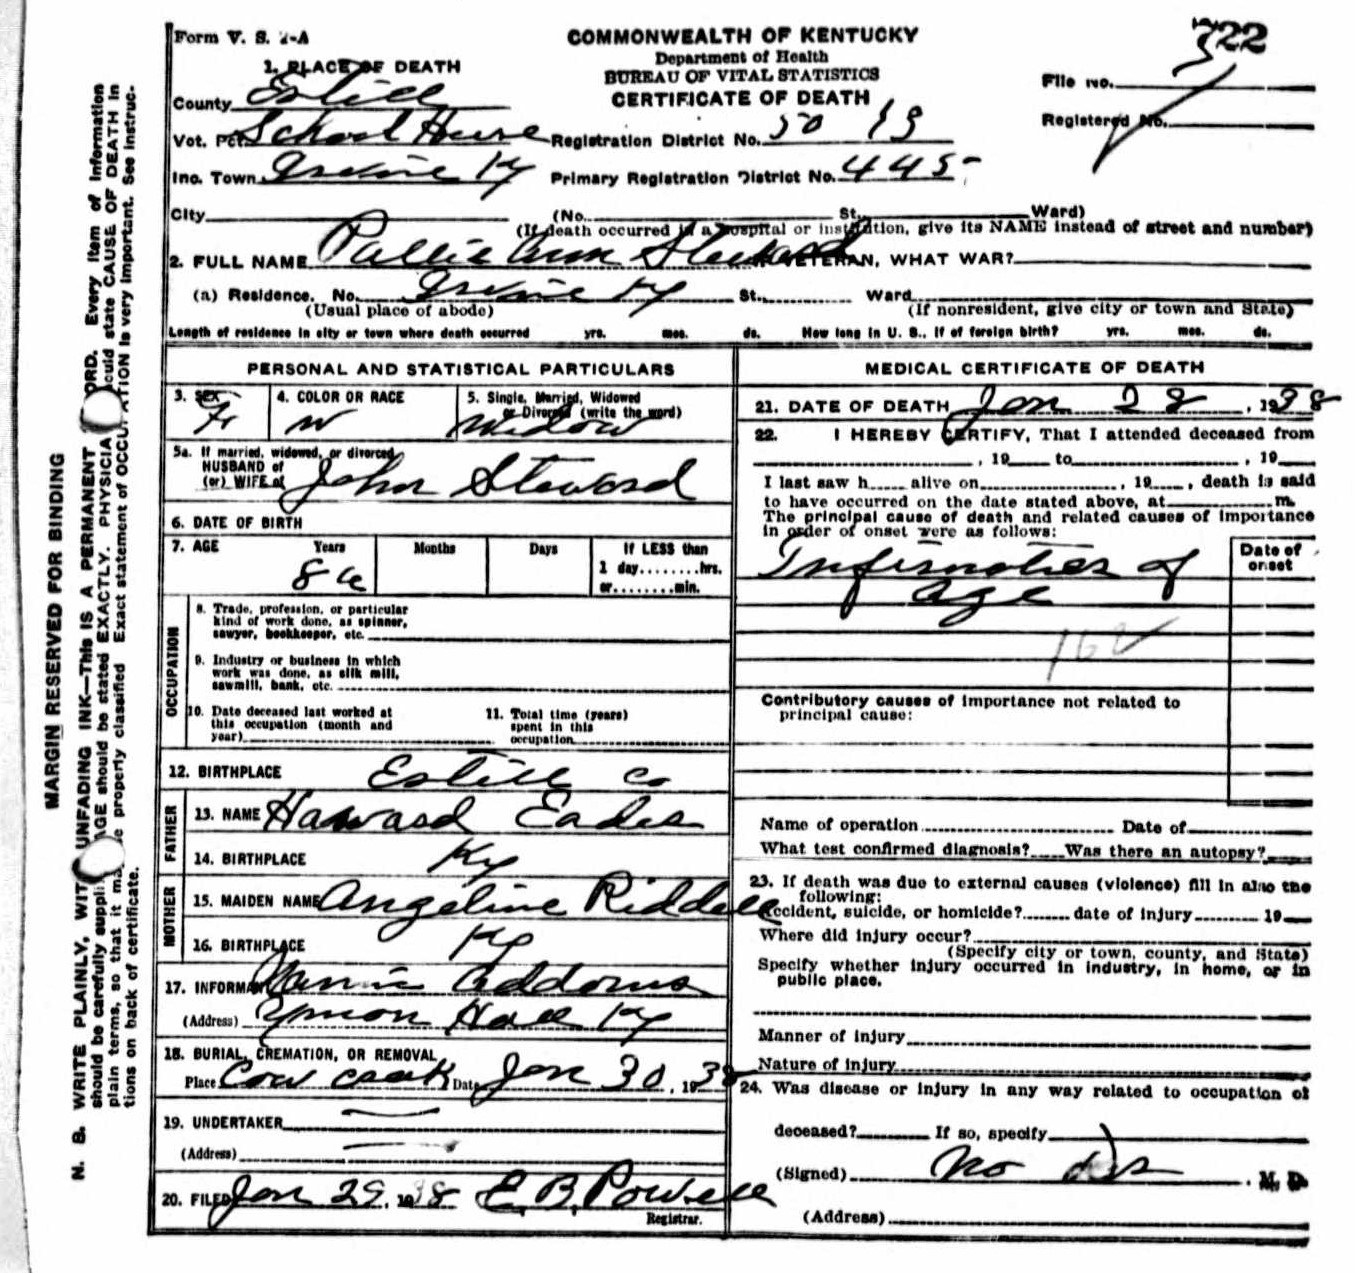 Form V. S. 1-A
COMMONWEALTH OF KENTUCKY
Department of Health
BUREAU OF VITAL STATISTICS
CERTIFICATE OF DEATH
722
File no.
Registered No.
1. PLACE OF DEATH
County Estill
Vot. Pct. School House Registration District No. 50 19
Inc. Town Irvine Ky Primary Registration District No. 445
City (No. St. Ward)
(If death occurred in a hospital or institution, give its NAME instead of street and number)
2. FULL NAME Pallie Ann Steward VETERAN, WHAT WAR?
(a) Residence. No. Irvine Ky St. Ward
(Usual place of abode) (If nonresident, give city or town and State)
Length of residence in city or town where death occurred yrs. mos. ds. How long in U. S., if of foreign birth? yrs. mos. ds.
PERSONAL AND STATISTICAL PARTICULARS
3. SEX F 4. COLOR OR RACE W 5. Single, Married, Widowed
or Divorced (write the word)
Widow
5a. If married, widowed, or divorced
HUSBAND of
(or) WIFE of John Steward
6. DATE OF BIRTH
7. AGE Years Months Days If LESS than
86 1 day........hrs.
or........min.
OCCUPATION
8. Trade, profession, or particular
kind of work done, as spinner,
sawyer, bookkeeper, etc.
9. Industry or business in which
work was done, as silk mill,
sawmill, bank, etc.
10. Date deceased last worked at
this occupation (month and
year)
11. Total time (years)
spent in this
occupation
12. BIRTHPLACE Estill Co
FATHER
13. NAME Haward Eades
14. BIRTHPLACE Ky
MOTHER
15. MAIDEN NAME Angeline Riddell
16. BIRTHPLACE Ky
17. INFORMANT Addoms
(Address) Hall Ky
18. BURIAL, CREMATION, OR REMOVAL
Place Cow Creek Date Jan 30, 1938
19. UNDERTAKER
(Address)
20. FILED Jan 29, 1938 E. B. Powell
Registrar.
MEDICAL CERTIFICATE OF DEATH
21. DATE OF DEATH Jan 28, 1938
22. I HEREBY CERTIFY, That I attended deceased from
, 19 to , 19
I last saw h alive on , 19 , death is said
to have occurred on the date stated above, at m.
The principal cause of death and related causes of importance
in order of onset were as follows:
Date of
onset
Infirmaties of
Age
162
Contributory causes of importance not related to
principal cause:
Name of operation Date of
What test confirmed diagnosis? Was there an autopsy?
23. If death was due to external causes (violence) fill in also the
following:
Accident, suicide, or homicide? date of injury 19
Where did injury occur?
(Specify city or town, county, and State)
Specify whether injury occurred in industry, in home, or in
public place.
Manner of injury
Nature of injury
24. Was disease or injury in any way related to occupation of
deceased? If so, specify
(Signed) No drs . M. D.
(Address)
MARGIN RESERVED FOR BINDING
N. B. WRITE PLAINLY, WITH UNFADING INK—THIS IS A PERMANENT RECORD. Every item of information
should be carefully supplied. AGE should be stated EXACTLY. PHYSICIANS should state CAUSE OF DEATH in
plain terms, so that it may be properly classified. Exact statement of OCCUPATION is very important. See instruc-
tions on back of certificate.